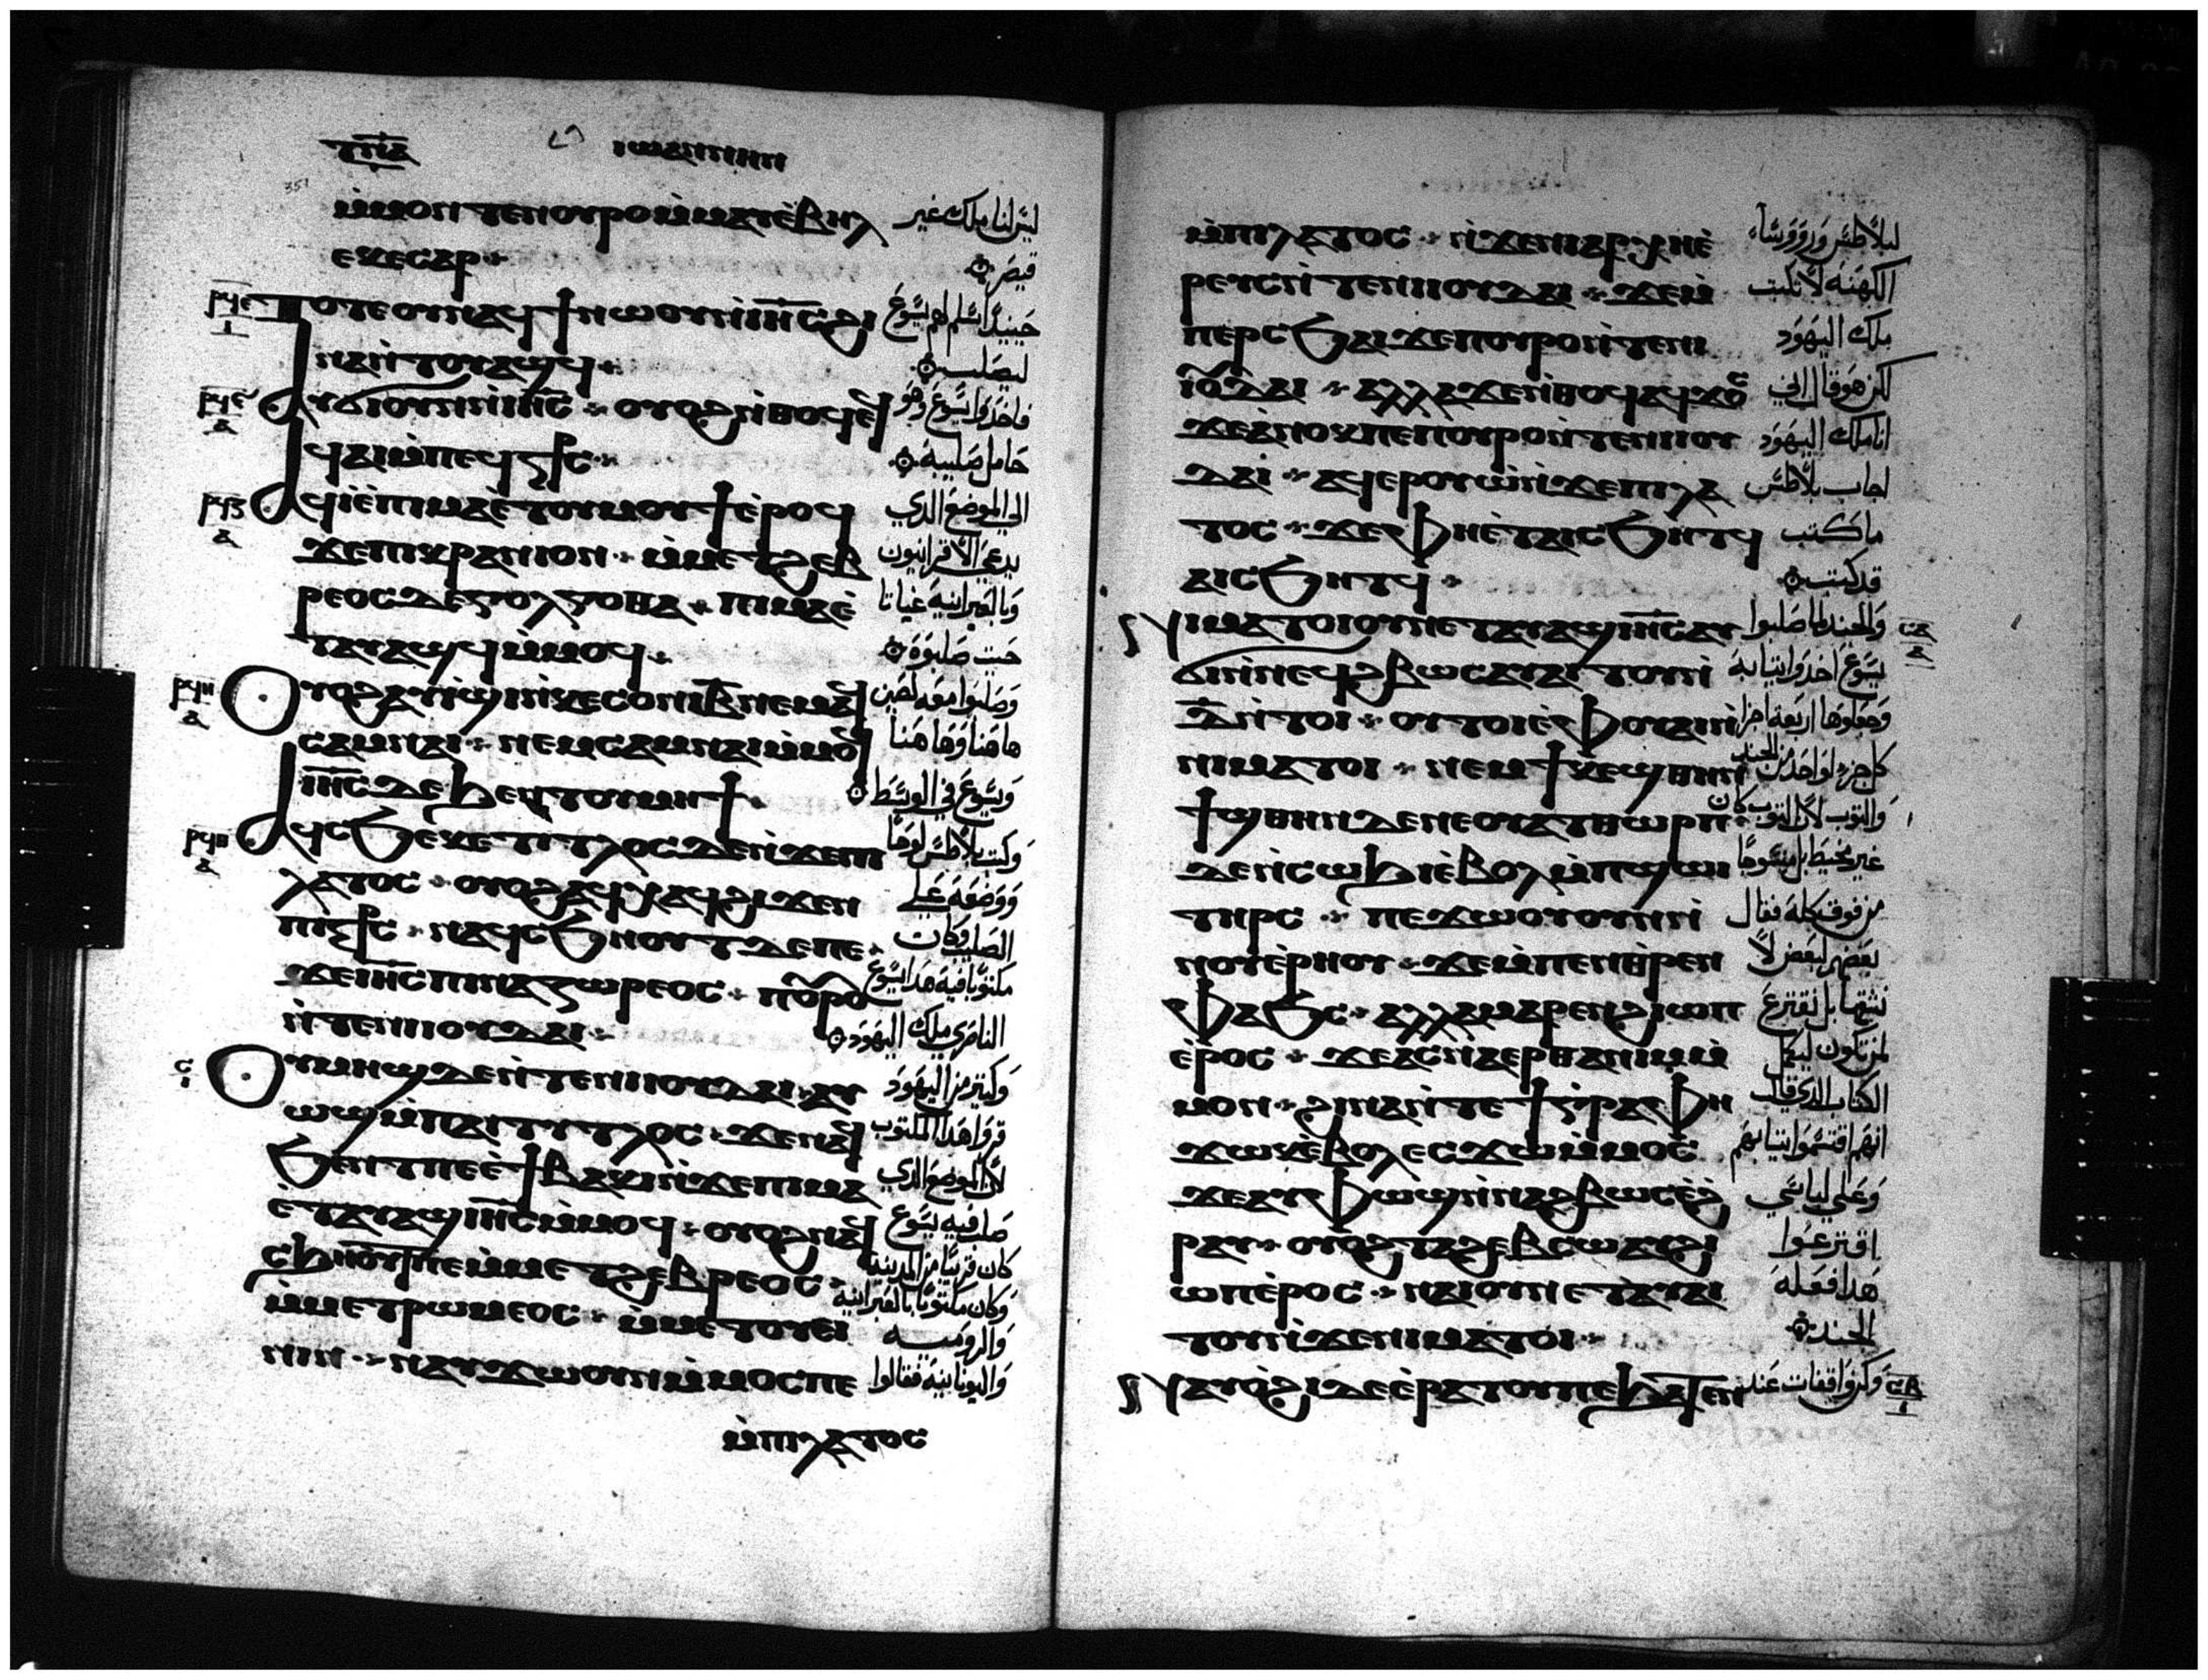 ⲧⲛⲁ ⲓⲱⲁⲛⲛⲏⲛ
351
ⲙ̀ⲙⲟⲛ ⲧⲉⲛⲟⲩⲣⲟ ⲙ̀ⲙⲁⲩ ⲉ̀ⲃⲏⲗ ليس لنا ملك غير
ⲉⲕⲉⲥⲁⲣ قيصر
ⲣϥⲉ ⲓ ⲧⲟⲧⲉ ⲟⲩⲛ ⲁϥϯ ⲛⲱⲟⲩ ⲛ̀ⲓⲏ̅ⲥ̅ ϩⲓ حينيذ اسلم لهم يسوع
ⲛⲁ ⲛ̀ⲧⲟⲩⲁϣϥ ليصلب
ⲣϥⲋ ⲁ ⲁⲩϭⲓ ⲟⲩⲛ ⲛ̀ⲓⲏ̅ⲥ̅ ⲟⲩⲟϩ ⲛ̀ⲑⲟϥ ⲉ̀ فاخدوا يسوع وهو
ϥⲁⲓ ⲙ̀ⲡⲉϥⲥ̅ϯ̅ⲥ̅ حامل صليبه
ⲣϥⲍ ⲁ ⲁϥⲓ̀ ⲉ̀ⲡⲓⲙⲁ ⲉ̀ⲧⲟⲩⲙⲟⲩϯ ⲉ̀ⲣⲟϥ الي الموضع الدي
ϫⲉ ⲡⲓⲕⲣⲁⲛⲓⲟⲛ ⲙ̀ⲙⲉⲧϩⲉⲃ يدعي الاقرانيون
ⲣⲉⲟⲥ ⲇⲉ ⲅⲟⲗⲅⲟⲑⲁ ⲡⲓⲙⲁ ⲉ̀ وبالعبرانيه
ⲧⲁⲩⲁϣϥ ⲙ̀ⲙⲟϥ حيت صلبوه
ⲣϥⲏ ⲁ ⲟⲩⲟϩ ⲁⲩⲓ̀ϣⲓ ⲛ̀ⲕⲉⲥⲟⲛⲓ ⲃ̅ ⲛⲉⲙⲁϥ وصلبوا معه لصين
ⲥⲁⲙⲛⲁⲓ ⲛⲉⲙ ⲥⲁⲙⲛⲁⲓ ⲙ̀ⲙⲟϥ هاهنا وهاهنا
ⲓⲏ̅ⲥ̅ ⲇⲉ ϧⲉⲛ ⲧⲟⲩⲙⲏϯ ويسوع في الوسط
ⲣϥⲑ ⲁ ⲁϥⲥϧⲉ ⲕⲉⲧⲓⲧⲗⲟⲥ ⲇⲉ ⲛ̀ϫⲉ ⲡⲓ وكتب بلاطس لوحا
ⲗⲁⲧⲟⲥ ⲟⲩⲟϩ ⲁϥⲭⲁϥ ϩⲓϫⲉⲛ ووضعه علي
ⲡⲓⲥ̅ϯ̅ⲥ̅ ⲛⲁϥⲥϧⲏⲟⲩⲧ ⲇⲉ ⲡⲉ الصليب وكان
ϫⲉ ⲓⲏ̅ⲥ̅ ⲡⲓⲛⲁⲍⲱⲣⲉⲟⲥ ⲡⲟⲩⲣⲟ مكتوبا فيه هدا يسوع
ⲛ̀ⲧⲉ ⲛⲓⲓⲟⲩⲇⲁⲓ الناصري ملك اليهود
ⲥ ⲓ ⲟⲩⲙⲏϣ ⲇⲉ ⲛ̀ⲧⲉ ⲛⲓⲓⲟⲩⲇⲁⲓ ⲁⲩ وكتير من اليهود
ⲱϣ ⲙ̀ⲡⲁⲓⲧⲓⲧⲗⲟⲥ ϫⲉ ⲛⲁϥ قروا هدا المكتوب
ϧⲉⲛⲧ ⲡⲉ ⲉ̀ϯⲃⲁⲕⲓ ⲛ̀ϫⲉ ⲡⲓⲙⲁ لان الموضع الدي
ⲉ̀ⲧⲁⲩⲁϣ ⲓⲏ̅ⲥ̅ ⲙ̀ⲙⲟϥ ⲟⲩⲟϩ ⲛⲁϥ صلب فيه يسوع
ⲥϧⲏⲟⲩⲧ ⲡⲉ ⲙ̀ⲙⲉⲧϩⲉⲃⲣⲉⲟⲥ كان قريبا من المدينه وكان مكتوبا بالعبرانيه
ⲙ̀ⲙⲉⲧⲣⲱⲙⲉⲟⲥ ⲙ̀ⲙⲉⲧⲟⲩⲉⲓ والروميه
ⲛⲓⲛ ⲛⲁⲩϫⲱ ⲟⲩⲛ ⲙ̀ⲙⲟⲥ ⲡⲉ واليونانيه فقالوا
ⲙ̀ⲡⲓⲗⲁⲧⲟⲥ
ⲙ̀ⲡⲓⲗⲁⲧⲟⲥ ⲛ̀ϫⲉ ⲛⲓⲁⲣⲭⲏⲉ̀ لبلاطس وروسا
ⲣⲉⲩⲥ ⲛ̀ⲧⲉ ⲛⲓⲓⲟⲩⲇⲁⲓ ϫⲉ ⲙ̀ الكهنه لا تكتب
ⲡⲉⲣⲥϧⲁⲓ ϫⲉ ⲡⲟⲩⲣⲟ ⲛ̀ⲧⲉ ⲛⲓ ملك اليهود
ⲓⲟⲩⲇⲁⲓ ⲁⲗⲗⲁ ϫⲉ ⲛ̀ⲑⲟϥ ⲁϥϫⲟⲥ لكن هو قال اني
ϫⲉ ⲁ̀ⲛⲟⲕ ⲡⲉ ⲡ̀ⲟⲩⲣⲟ ⲛ̀ⲧⲉ ⲛⲓⲓⲟⲩ انا ملك اليهود
ⲇⲁⲓ ⲁϥⲉⲣⲟⲩⲱ̀ ⲛ̀ϫⲉ ⲡⲓⲗⲁ اجاب بلاطس
ⲧⲟⲥ ϫⲉ ⲫⲏ ⲉ̀ⲧⲁⲓⲥϧⲏⲧϥ ما كتب
ⲁⲓⲥϧⲏⲧϥ قد كتب
ⲛⲓⲙⲁⲧⲟⲓ ⲟⲩⲛ ⲉⲧⲁⲩⲁϣ ⲓⲏ̅ⲥ̅ ⲁⲩ والجند لما صلبوا ⲥⲁ ⲁ
ϭⲓ ⲛ̀ⲛⲉϥϩⲃⲱⲥ ⲁⲩⲁⲓⲧⲟⲩ ⲛ̀ يسوع اخدوا تيابه
ⲇ̅ ⲛ̀ⲧⲟⲓ ⲟⲩⲧⲟⲓ ⲉ̀ⲫⲟⲩⲁⲓ ⲛ̀ وجعلوها اربعة اجزا
ⲛⲓⲙⲁⲧⲟⲓ ⲛⲉⲙ ϯⲕⲉϣⲑⲏⲛ كل جزو لواحد من الجند
ϯϣⲑⲏⲛ ⲇⲉ ⲛⲉ ⲟⲩⲁⲧⲑⲱⲣⲡ والتوب لان التوب كان
ⲇⲉ ⲛ̀ⲥⲱϧⲓ ⲉ̀ⲃⲟⲗ ⲙ̀ⲡϣⲱⲓ غير مخيط بل منسوجا
ⲧⲏⲣⲥ ⲡⲉϫⲱⲟⲩ ⲟⲩⲛ ⲛ̀ من فوق كله فقال
ⲛⲟⲩⲉ̀ⲣⲏⲟⲩ ϫⲉ ⲙ̀ⲡⲉⲛⲑⲣⲉⲛ بعضهم لبعض لا
ⲫⲁϧⲥ ⲁⲗⲗⲁ ⲙⲁⲣⲉⲛϩⲓⲱⲡ نشقها بل نقترع
ⲉ̀ⲣⲟⲥ ϫⲉ ⲁⲥⲛⲁⲉⲣ ⲑⲁ ⲛⲓⲙ ⲙ̀ لمن تكون ليكمل
ⲙⲟⲛ ϩⲓⲛⲁ ⲛ̀ⲧⲉ ϯⲅⲣⲁⲫⲏ الكتاب الدي قال
ϫⲱⲕ ⲉ̀ⲃⲟⲗ ⲉⲥϫⲱ ⲙ̀ⲙⲟⲥ انهم اقتسموا تيابهم
ϫⲉ ⲁⲩⲫⲱ̀ϣ ⲛ̀ⲛⲁϩⲃⲱⲥ ⲉ̀ϩ وعلي لباسي
ⲣⲁⲩ ⲟⲩⲟϩ ⲧⲁϩⲉⲃⲥⲱ ⲁⲩϩⲓ اقترعوا
ⲱⲡ ⲉ̀ⲣⲟⲥ ⲛⲁⲓ ⲟⲩⲛ ⲉⲧⲁⲩⲁⲓ هدا فعله
ⲧⲟⲩ ⲛ̀ϫⲉ ⲛⲓⲙⲁⲧⲟⲓ الجند
ⲛⲁⲩⲟ̀ϩⲓ ⲇⲉ ⲉ̀ⲣⲁⲧⲟⲩ ⲡⲉ ϧⲁⲧⲉⲛ وكن واقفات عند ⲥⲃ ⲓ